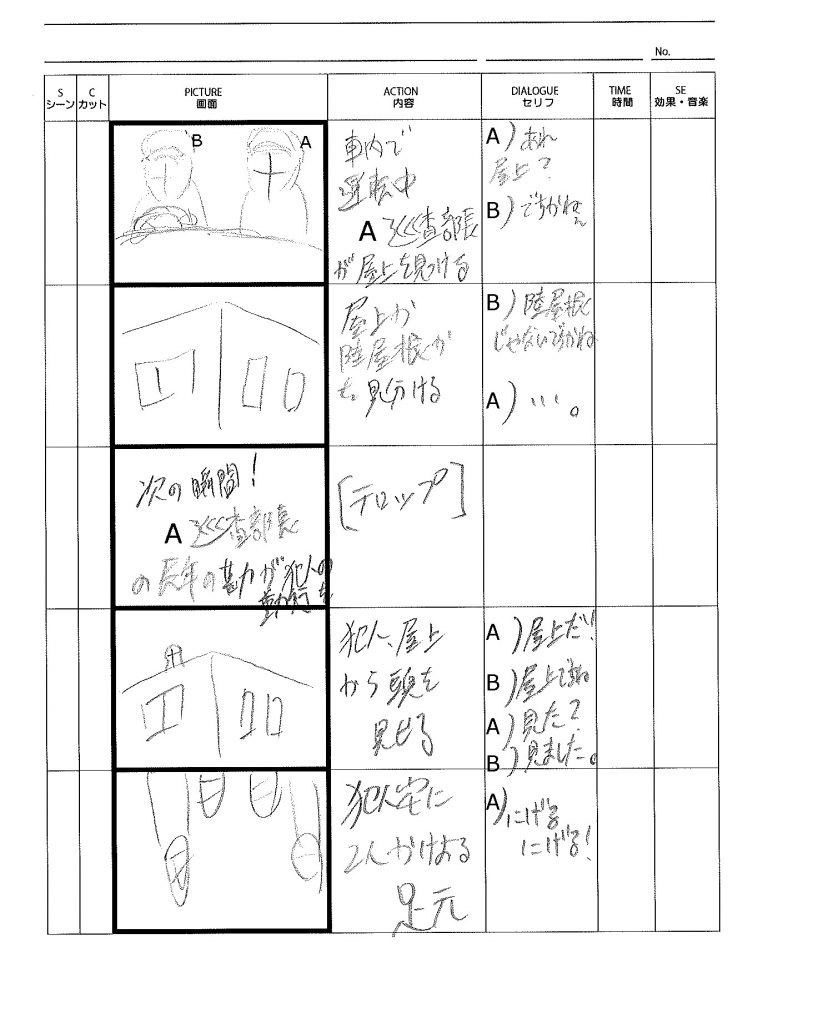 No.
S
シーン
C
カット
PICTURE
画面
ACTION
内容
DIALOGUE
セリフ
TIME
時間
SE
効果・音楽
B
A
車内で
運転中
A 巡査部長
が屋上を見つける
A)あれ
屋上?
B)
屋上か
陸屋根か
を見分ける
B)陸屋根
じゃないですかね
A)…。
次の瞬間!
A 巡査部長
の長年の勘が犯人の
を
[テロップ]
犯人、屋上
から頭を
見せる
A)屋上だ!
B)屋上ですね
A)見た?
B)見ました。
犯人宅に
2人かけよる
足元
A)にげる
にげる!